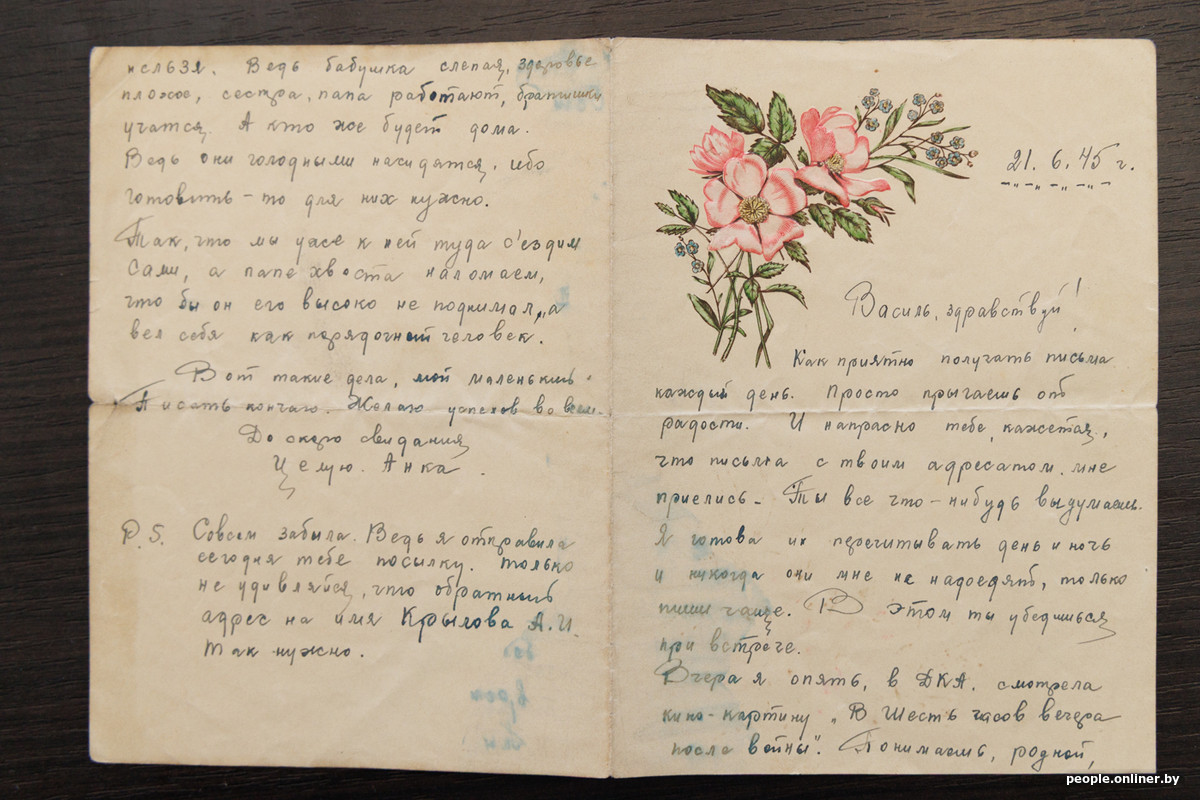 нельзя. Ведь бабушка слепая, здоровье
плохое, сестра, папа работают, братишки
учатся. А кто же будет дома.
Ведь они голодными насидатся, ибо
готовить - то для них нужно.
Так, что мы уже к ней туда с'ездим
сами, а папе хвоста наломаем,
что бы он его высоко не поднимал, а
вел себя как порядочный человек.
Вот такие дела, мой маленький.
Писать кончаю. Желаю успехов во всем.
До скоро свидания
Целую. Анка.
P.S. Совсем забыла. Ведь я отправила
сегодня тебе посылку. Только
не удивляйся, что обратный
адрес на имя Крылова А.И.
Так нужно.
21. 6. 45 г.
Василь, здравствуй!
Как приятно получать письма
каждый день. Просто прыгаешь от
радости. И напрасно тебе, кажется,
что письма с твоим адресатом, мне
приелись. Ты все что-нибудь выдумаешь.
Я готова их перечитывать день и ночь
и никогда они мне не надоедят, только
пиши чаще. В этом ты убедишься
при встрече.
Вчера я опять, в ДКА. смотрела
кино-картину „В Шесть часов вечера
после войны". Понимаешь, родной,
people.onliner.by